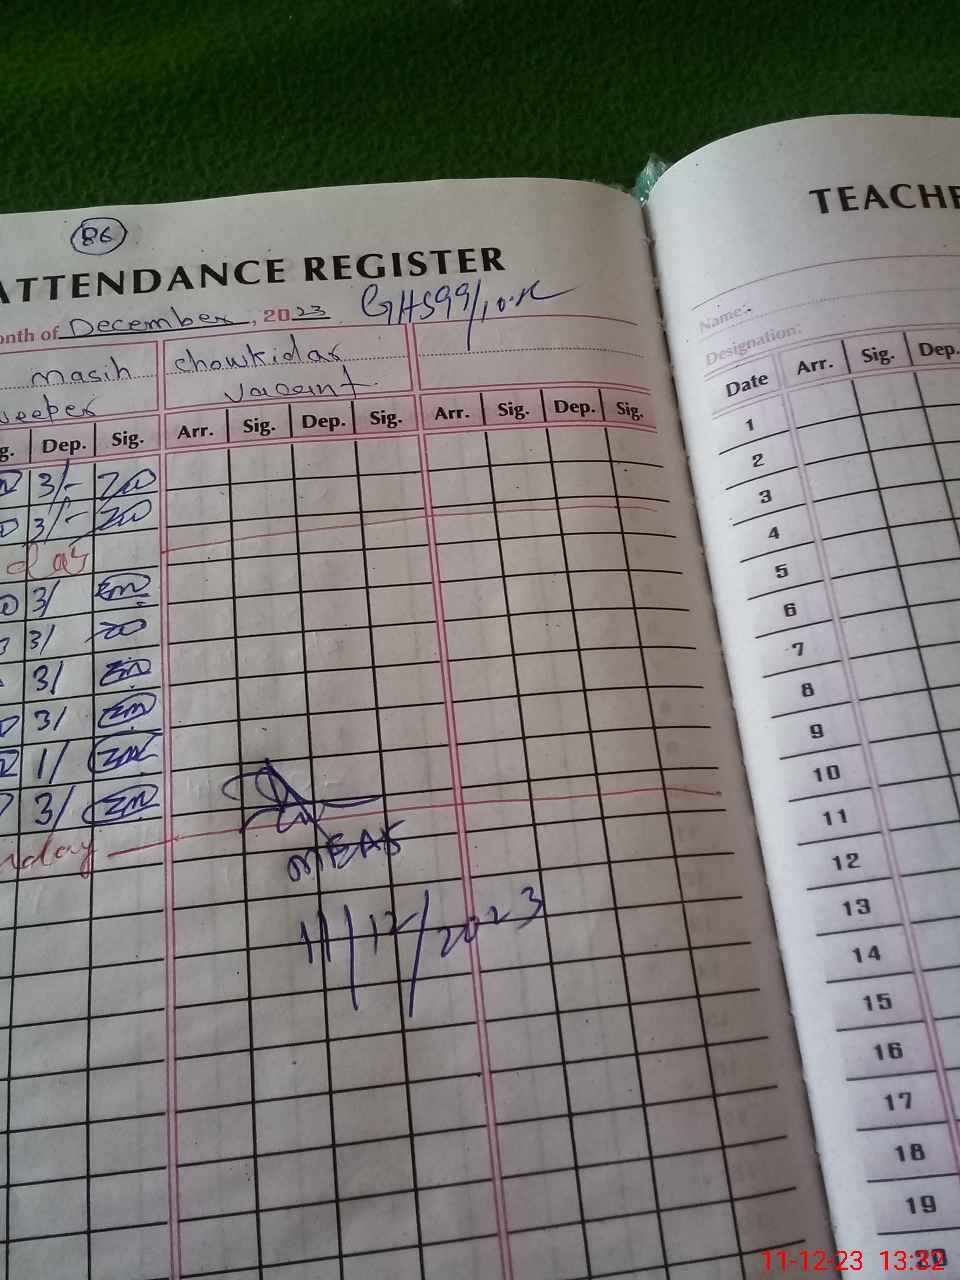 86
ATTENDANCE REGISTER
onth of December, 2023 GHS 99/10-R
masih chowkidar
weeper vacant
g. Dep. Sig. Arr. Sig. Dep. Sig. Arr. Sig. Dep. Sig.
3/-
3/-
day
3/
3/
3/
3/
1/
3/
nday
MEA
11/12/2023
TEACHE
Name:
Designation:
Date Arr. Sig. Dep.
1
2
3
4
5
6
7
8
9
10
11
12
13
14
15
16
17
18
19
20
11-12-23 13:32